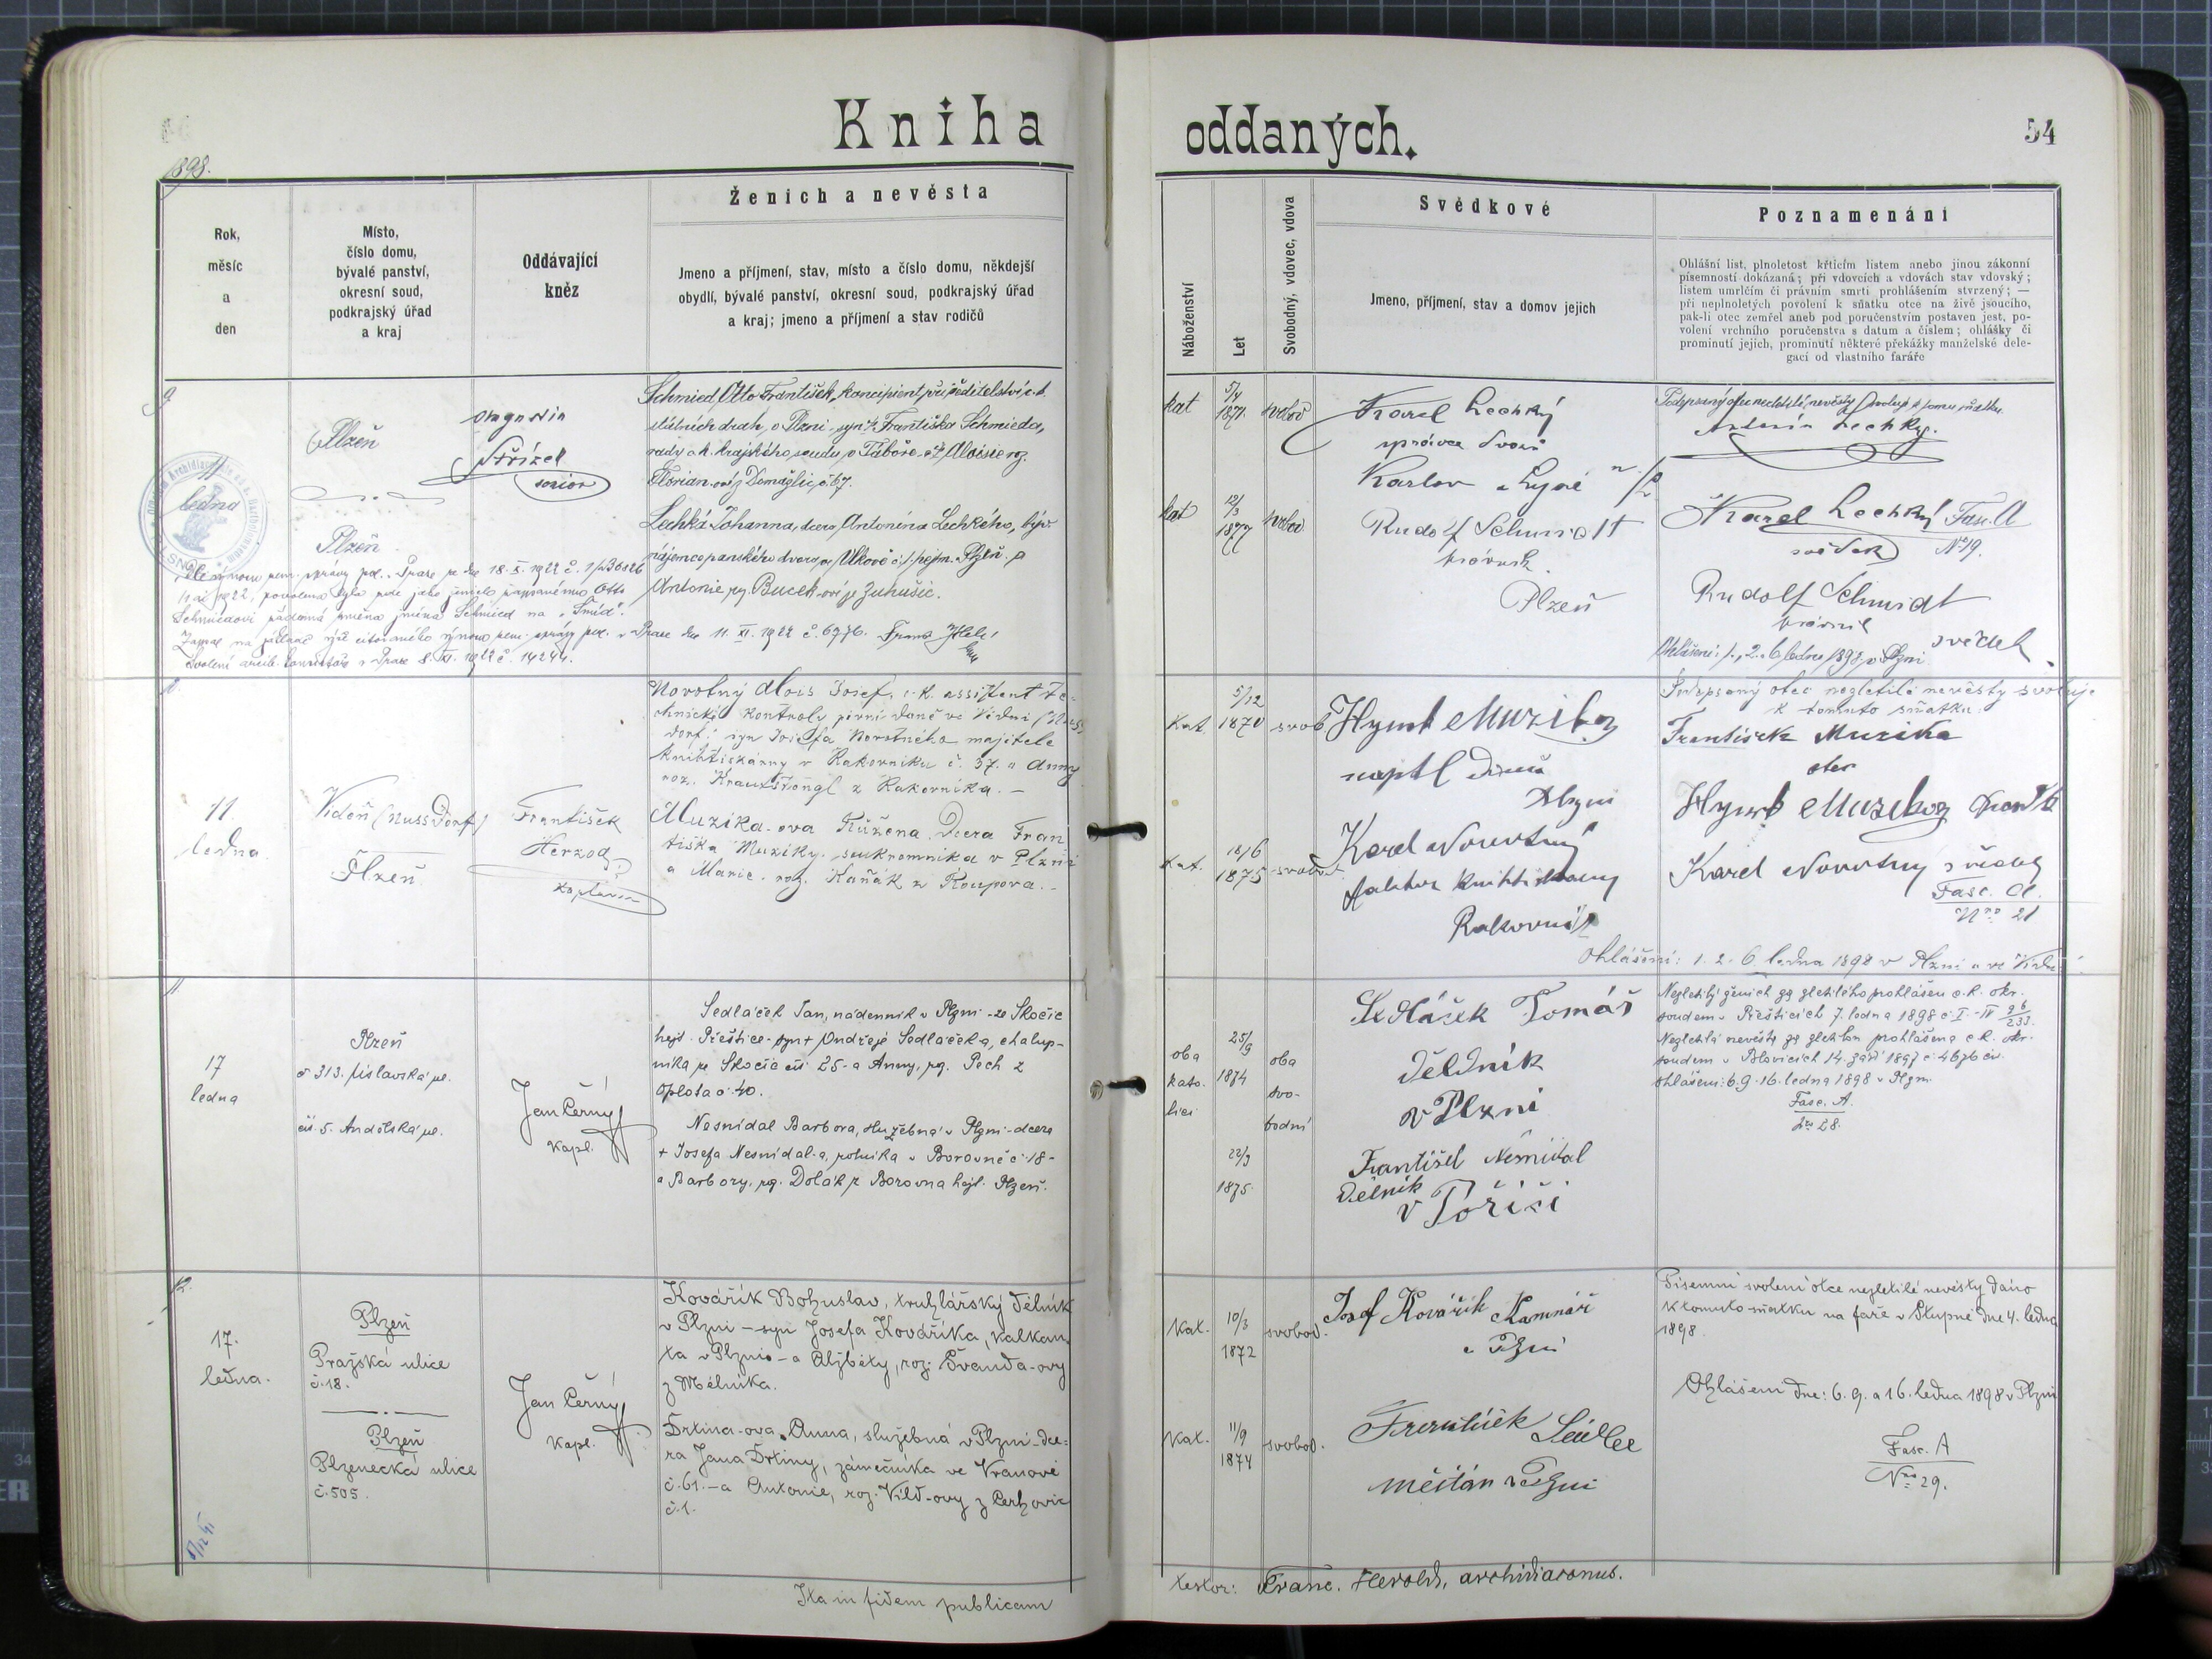 Kniha
oddaných.
54
1898.
Rok,
měsíc
a
den
Místo,
číslo domu,
bývalé panství,
okresní soud,
podkrajský úřad
a kraj
Oddávající
kněz
Ženich a nevěsta
Jmeno a příjmení, stav, místo a číslo domu, někdejší
obydlí, bývalé panství, okresní soud, podkrajský úřad
a kraj; jmeno a příjmení a stav rodičů
Náboženství
Let
Svobodný, vdovec, vdova
Svědkové
Jmeno, příjmení, stav a domov jejich
Poznamenání
Ohlášní list, plnoletost křticím listem anebo jinou zákonní
písemností dokázaná; při vdovcích a vdovách stav vdovský;
listem umrlčím či právním smrti prohlášením stvrzený; —
při neplnoletých povolení k sňatku otce na živě jsoucího,
pak-li otec zemřel aneb pod poručenstvím postaven jest, po-
volení vrchního poručenstva s datum a číslem; ohlášky či
prominutí jejich, prominutí některé překážky manželské dele-
gací od vlastního faráře
9
11
ledna
Plzeň
Plzeň
senior
Schmied Otto František, koncipient při ředitelství c. k.
státních drah, v Plzni - syn † Františka Schmieda,
rady c. k. krajského soudu v Táboře, a † Aloisie roz.
Florian-ové z Domažlic č. 67.
Lechká Johanna, dcera Antonína Lechkého, býv.
nájemce panského dvora
Antonie roz. Bucek-ové ze Zuhušic.
kat
5/4
1871
svobod
kat
12/3
1877
svobod
Karel Lechký
správce dvora
Karlov
Rudolf Schmidt
právník
Plzeň
Podepsaný otec nezletilé nevěsty svoluje k tomu sňatku
Antonín Lechký.
Karel Lechký Fasc. A
svědek No 19.
Rudolf Schmidt
právník
svědek
Ohlášení: 1., 2. 6. ledna 1898 v Plzni
11.
ledna.
Vídeň (Nussdorf)
Plzeň
František
Herzog
kaplan
Novotný Alois Josef, c. k. assistent te-
chnické kontroly pivní daně ve Vídni (Nuss-
dorf) syn Josefa Novotného majitele
knihtiskárny v Rakovníku č. 37. a Anny
roz. z Rakovníka. —
Muzika-ova Růžena. Dcera Fran
tiška Muziky. soukromníka v Plzni
a Marie. roz. Kaňák z Roupova. —
Kat.
5/12
1870
svob.
Kat.
18/6
1875
svobod
Hynek Muzika
Plzni
Karel Novotný
faktor knihtiskárny
Rakovník
Podepsaný otec nezletilé nevěsty svoluje
k tomuto sňatku:
František Muzika
otec
Hynek Muzika svědek
Karel Novotny svědek
Fasc. A.
Nro 21
Ohlášení: 1. 2. 6. ledna 1898 v Plzni a ve Vídni
11.
17
ledna
Plzeň
č 313.
čís. 5. Andělská ul.
Jan Černý
Kapl.
Sedláček Jan, nádenník v Plzni - ze Skočic
hejt. Přeštice - syn † Ondřeje Sedláčka, chalup-
níka ze Skočic čís 25 - a Anny, roz. Pech z
Oplota č. 40.
Nesnídal Barbora, služebná v Plzni - dcera
† Josefa Nesnídal-a, rolníka v Borovně č. 18 -
a Barbory, roz. Dolák z Borovna hejt. Plzeň.
oba
kato.
lici
25/9
1874
22/9
1875.
oba
svo-
bodni
Sedláček Tomáš
Dělník
v Plzni
František Nesnidal
Dělnik
v Poříčí
Nezletilý ženich za zletilého prohlášen c. k. okr.
soudem v Přešticích 7. ledna 1898
Nezletilá nevěsta za zletilou prohlášena c. k. okr.
soudem v Blovicích 14. září 1897 č. 4676 civ.
Ohlášeni: 6. 9. 16. ledna 1898 v Plzni
Fasc. A.
Nro 28.
12.
17.
ledna.
Plzeň
Pražská ulice
č. 18.
Plzeň
Plzenecká ulice
č. 505.
Jan Černý
Kapl.
Kovářík Bohuslav, truhlářský dělník
v Plzni — syn Josefa Kováříka, kalkan-
ta v Plzni — a Alžběty, roz. Švanda-ovy
z Mělníka.
Drtina-ova Anna, služebná v Plzni - dce-
ra Jana Drtiny, zámečníka ve Vranově
č. 61. — a Antonie, roz. Vild-ovy z Cerhovic
č. 1.
Kat.
10/3
1872
svobod.
Kat.
11/9
1874
svobod.
Josef Kovářik Kamnář
v Plzni
František
měšťan v Plzni
Písemní svolení otce nezletilé nevěsty dáno
k tomuto sňatku na faře v Stupně dne 4. ledna
1898.
Ohlášeni dne: 6. 9. a 16. ledna 1898 v Plzni
Fasc. A
Nro 29.
Ita in fidem publicam
testor: Franc. Herold, archidiaconus.